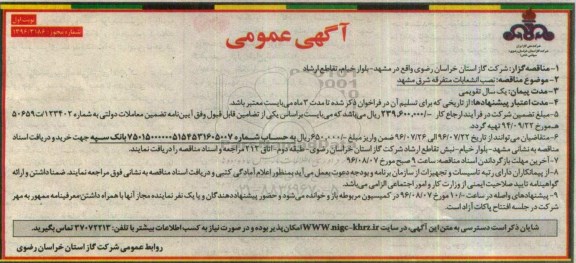 نوبت اول
آگهی عمومی
شماره مجوز: ۱۳۹۶.۳۱۸۶
شرکت ملی گاز ایران
۱- مناقصه گزار: شرکت گاز استان خراسان رضوی واقع در مشهد-بلوار خیام، تقاطع ارشاد
۲- موضوع مناقصه: نصب انشعابات متفرقه شرق مشهد
۳- مدت پیمان: یک سال تقویمی
۴- مدت اعتبار پیشنهادها: از تاریخی که برای تسلیم آن در فراخوان ذکر شده تا مدت ۳ ماه می‌بایست معتبر باشد.
۵- مبلغ تضمین شرکت در فرآیند ارجاع کار ۲۳۹,۶۰۰,۰۰۰/- ریال می‌باشد که می‌بایست براساس یکی از تضامین قابل قبول وفق آیین‌نامه تضمین معاملات دولتی به شماره ۱۲۳۴۰۲/ت ۵۰۶۵۹
هـ مورخ ۹۴/۰۹/۲۲ تهیه گردد.
۶- متقاضیان می‌توانند از تاریخ ۹۶/۰۷/۲۲ الی ۹۶/۰۷/۲۶ ضمن واریز مبلغ ۶۵۰,۰۰۰/- ریال به حساب شماره ۷۵۰۱۵۰۰۰۰۰۵۱۵۴۵۳۱۶۰۵۰۰۷ بانک سپه جهت خرید و دریافت اسناد
مناقصه به نشانی مشهد- بلوار خیام- نبش تقاطع ارشاد شرکت گاز استان خراسان رضوی- طبقه دوم- اتاق ۲۱۲ مراجعه و اسناد مناقصه را دریافت نمایند.
۷- آخرین مهلت بازگرداندن اسناد مناقصه: ساعت ۹ صبح مورخ ۹۶/۰۸/۰۷
۸- از پیمانکاران دارای رتبه تاسیسات و تجهیزات از سازمان برنامه و بودجه دعوت بعمل می‌آید بمنظور اعلام آمادگی کتبی و دریافت اسناد مناقصه به نشانی فوق مراجعه نمایند. ضمنا داشتن و ارائه
گواهینامه تایید صلاحیت ایمنی از وزارت کار و امور اجتماعی الزامی می‌باشد.
۹- پیشنهادهای واصله در ساعت ۱۰/۰۰ مورخ ۹۶/۰۸/۰۷ در کمیسیون مربوطه باز و خوانده می‌شود و حضور پیشنهاددهندگان و یا یک نفر نماینده مجاز آنها با همراه داشتن معرفینامه ممهور به مهر
شرکت در جلسه افتتاح پاکات آزاد است.
شایان ذکر است دسترسی به متن این آگهی، در سایت WWW.nigc-khrz.ir امکان پذیر بوده و در صورت نیاز به کسب اطلاعات بیشتر با تلفن: ۳۷۰۷۲۲۱۳ تماس بگیرید.
روابط عمومی شرکت گاز استان خراسان رضوی